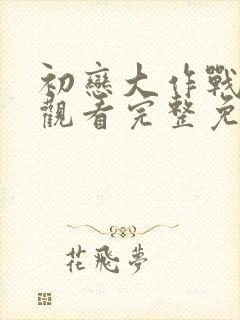 初戀大作戰
觀看完整免
花飛夢